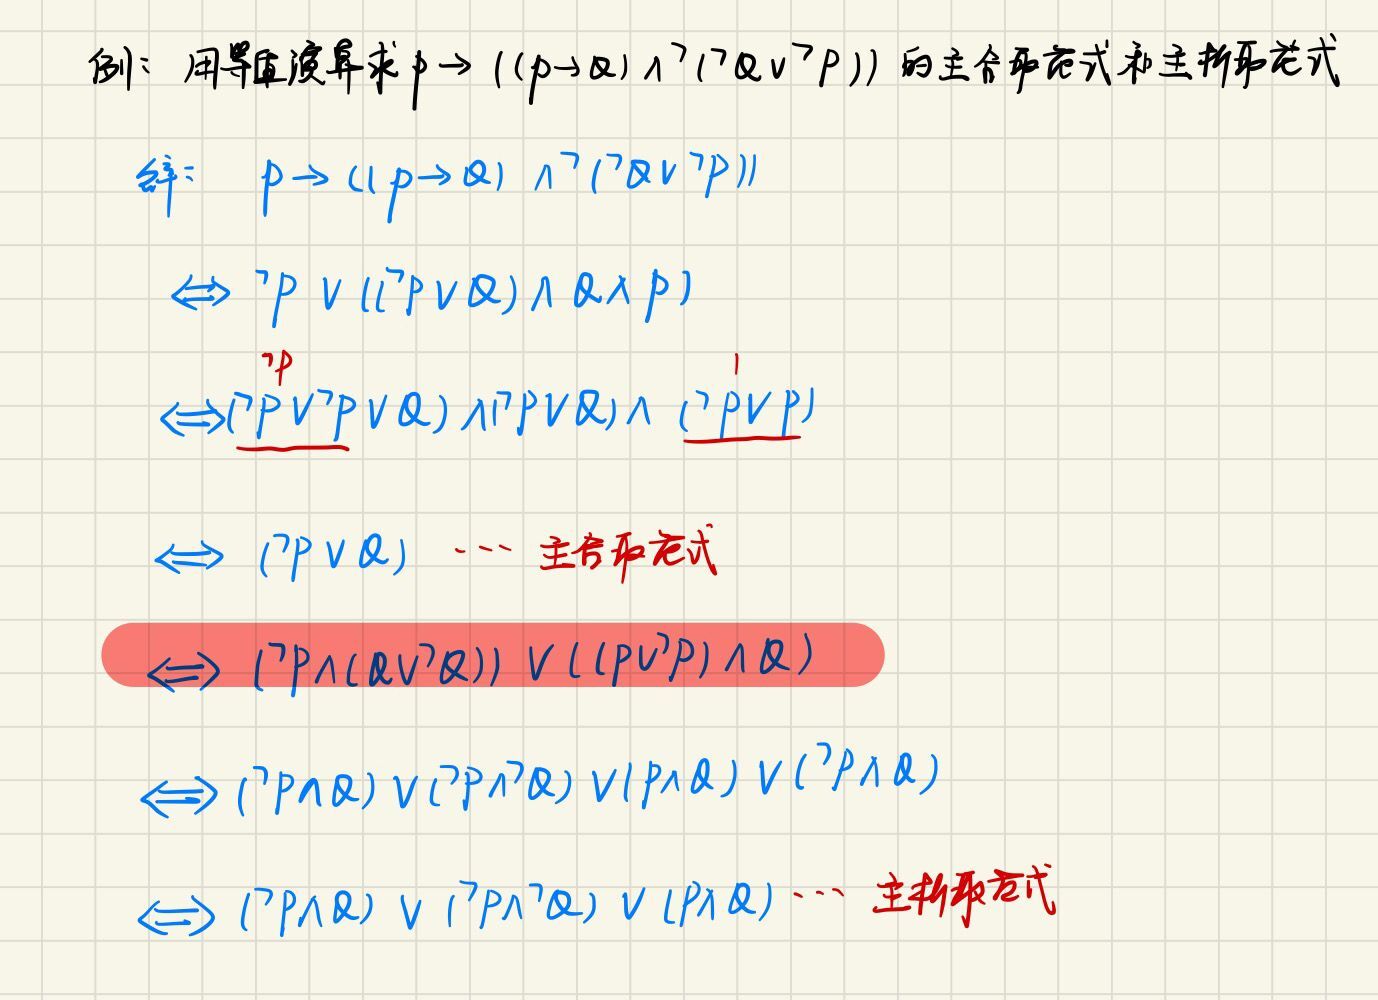 例: 用等值演算求 p → ((p→Q) ∧ ¬(¬Q∨¬P)) 的主合取范式和主析取范式
解: p → ((p→Q) ∧ ¬(¬Q∨¬P))
⇔ ¬P ∨ ((¬P∨Q) ∧ Q ∧ P)
¬P 1
⇔ (¬P∨¬P∨Q) ∧ (¬P∨Q) ∧ (¬P∨P)
⇔ (¬P∨Q) ··· 主合取范式
⇔ (¬P∧(Q∨¬Q)) ∨ ((P∨¬P)∧Q)
⇔ (¬P∧Q) ∨ (¬P∧¬Q) ∨ (P∧Q) ∨ (¬P∧Q)
⇔ (¬P∧Q) ∨ (¬P∧¬Q) ∨ (P∧Q) ··· 主析取范式